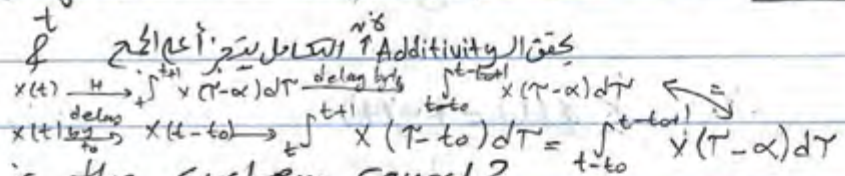 t
& يحقق ال Additivity لأن التكامل يتجزأ على الجمع
x(t) —H→ ∫_t^{t+1} x(τ-α)dτ —delay by t₀→ ∫_{t-t₀}^{t-t₀+1} x(τ-α)dτ
x(t) —delay by t₀→ x(t-t₀) → ∫_t^{t+1} x(τ-t₀)dτ = ∫_{t-t₀}^{t-t₀+1} x(τ-α)dτ =
is the system causal?